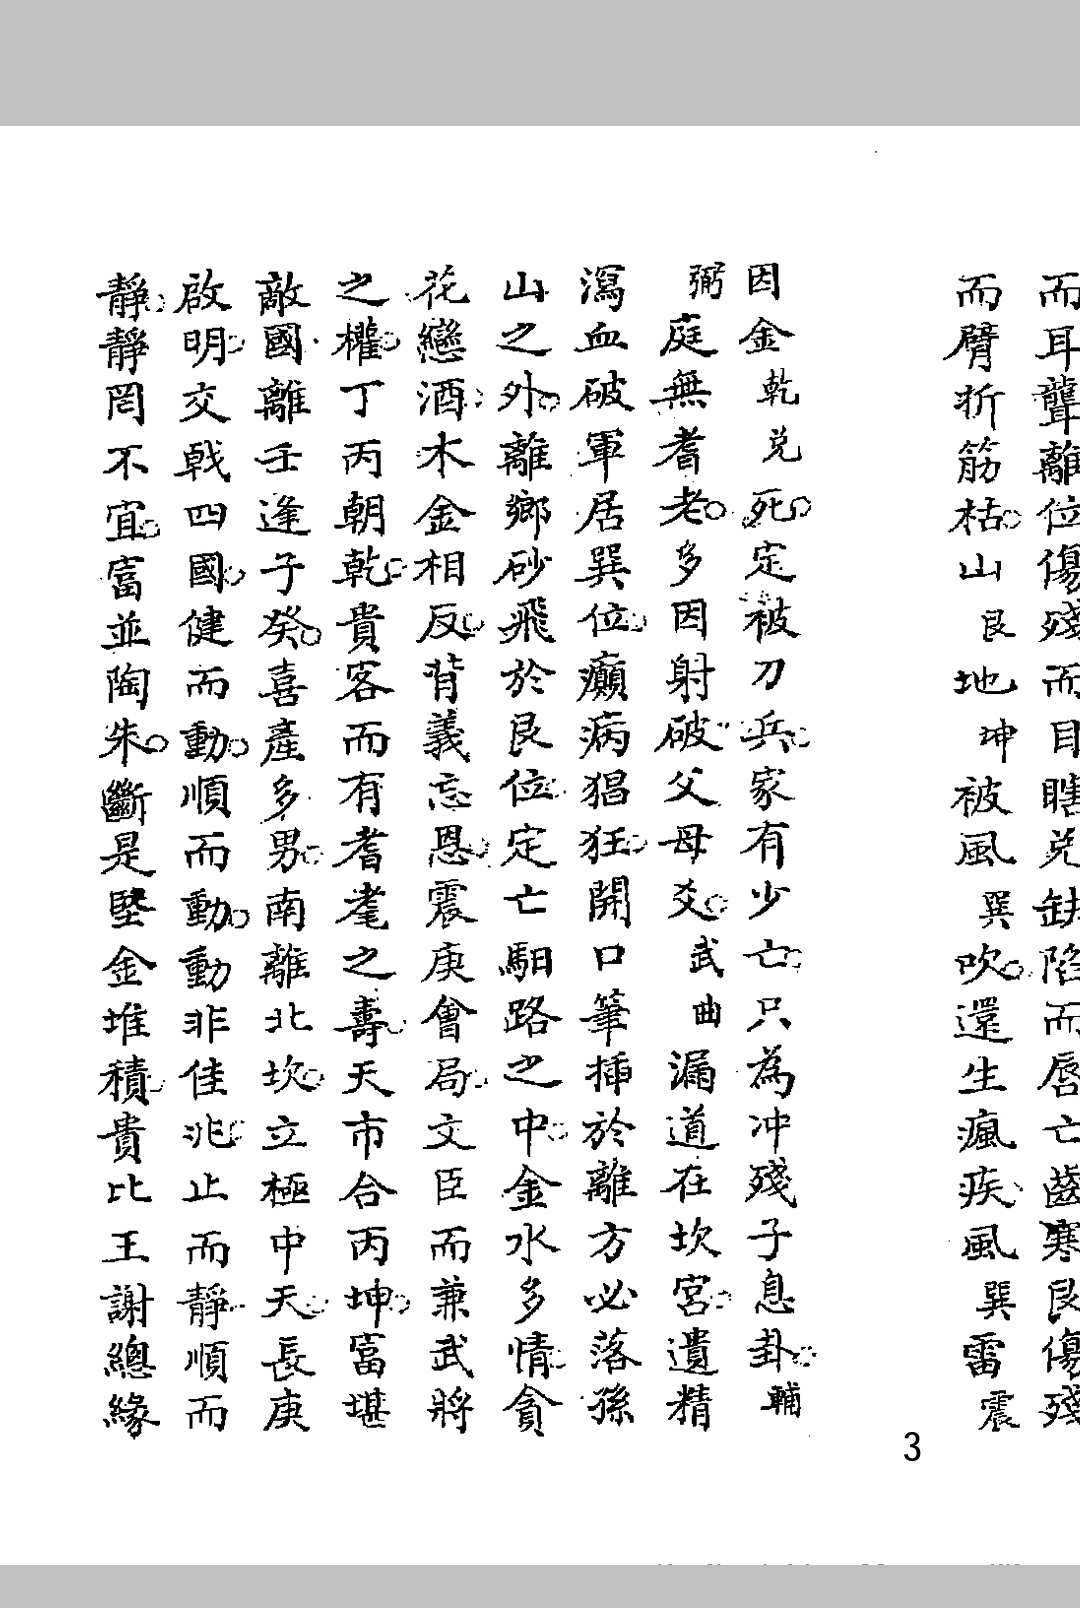 而耳聾離位傷殘而目瞎兑缺陷而唇亡齒寒艮傷殘
而臂折筋枯山艮地坤被風巽吹還生瘋疾風巽雷震
因金乾兑死定被刀兵家有少亡只為冲殘子息卦輔
弼庭無耆老多因射破父母爻武曲漏道在坎宮遺精
瀉血破軍居巽位癲病猖狂開口筆揷於離方必落孫
山之外離鄉砂飛於艮位定亡馹路之中金水多情貪
花戀酒木金相反背義忘恩震庚會局文臣而兼武將
之權丁丙朝乾貴客而有耆耄之壽天市合丙坤富堪
敵國離壬逢子癸喜產多男南離北坎立極中天長庚
啟明交戟四國健而動順而動動非佳兆止而靜順而
靜靜罔不宜富並陶朱斷是堅金堆積貴比王謝總緣
3